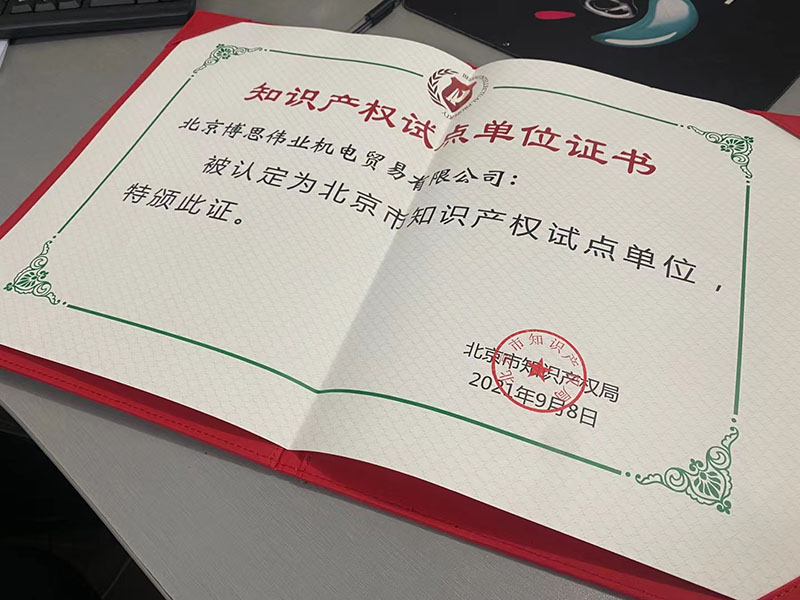 知识产权试点单位证书
北京博思伟业机电贸易有限公司：
被认定为北京市知识产权试点单位，
特颁此证。
北京市知识产权局
2021年9月8日
北京市知识产权局